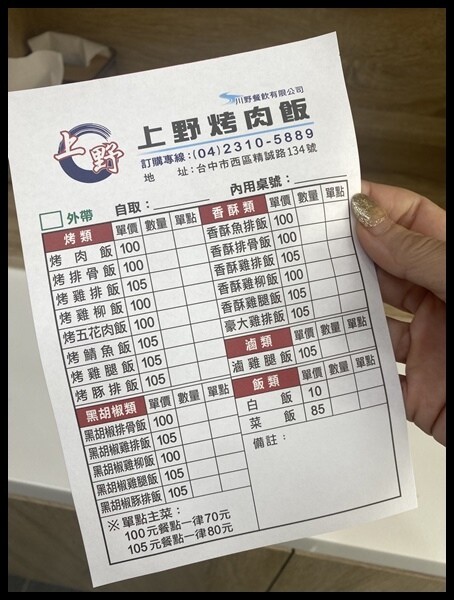 川野餐飲有限公司
上野
上野烤肉飯
訂購專線：(04)2310-5889
地　址：台中市西區精誠路134號
外帶　自取：　內用桌號：
烤類　單價　數量　單點
烤肉飯　100
烤排骨飯　100
烤雞排飯　105
烤雞柳飯　100
烤五花肉飯　100
烤鯖魚飯　105
烤雞腿飯　105
烤豚排飯　105
黑胡椒類　單價　數量　單點
黑胡椒排骨飯　100
黑胡椒雞排飯　105
黑胡椒雞柳飯　100
黑胡椒雞腿飯　105
黑胡椒豚排飯　105
※單點主菜：
100元餐點一律70元
105元餐點一律80元
香酥類　單價　數量　單點
香酥魚排飯　100
香酥排骨飯　100
香酥雞排飯　105
香酥雞柳飯　100
香酥雞腿飯　105
豪大雞排飯　105
滷類　單價　數量　單點
滷雞腿飯　105
飯類　單價　數量　單點
白飯　10
菜飯　85
備註：